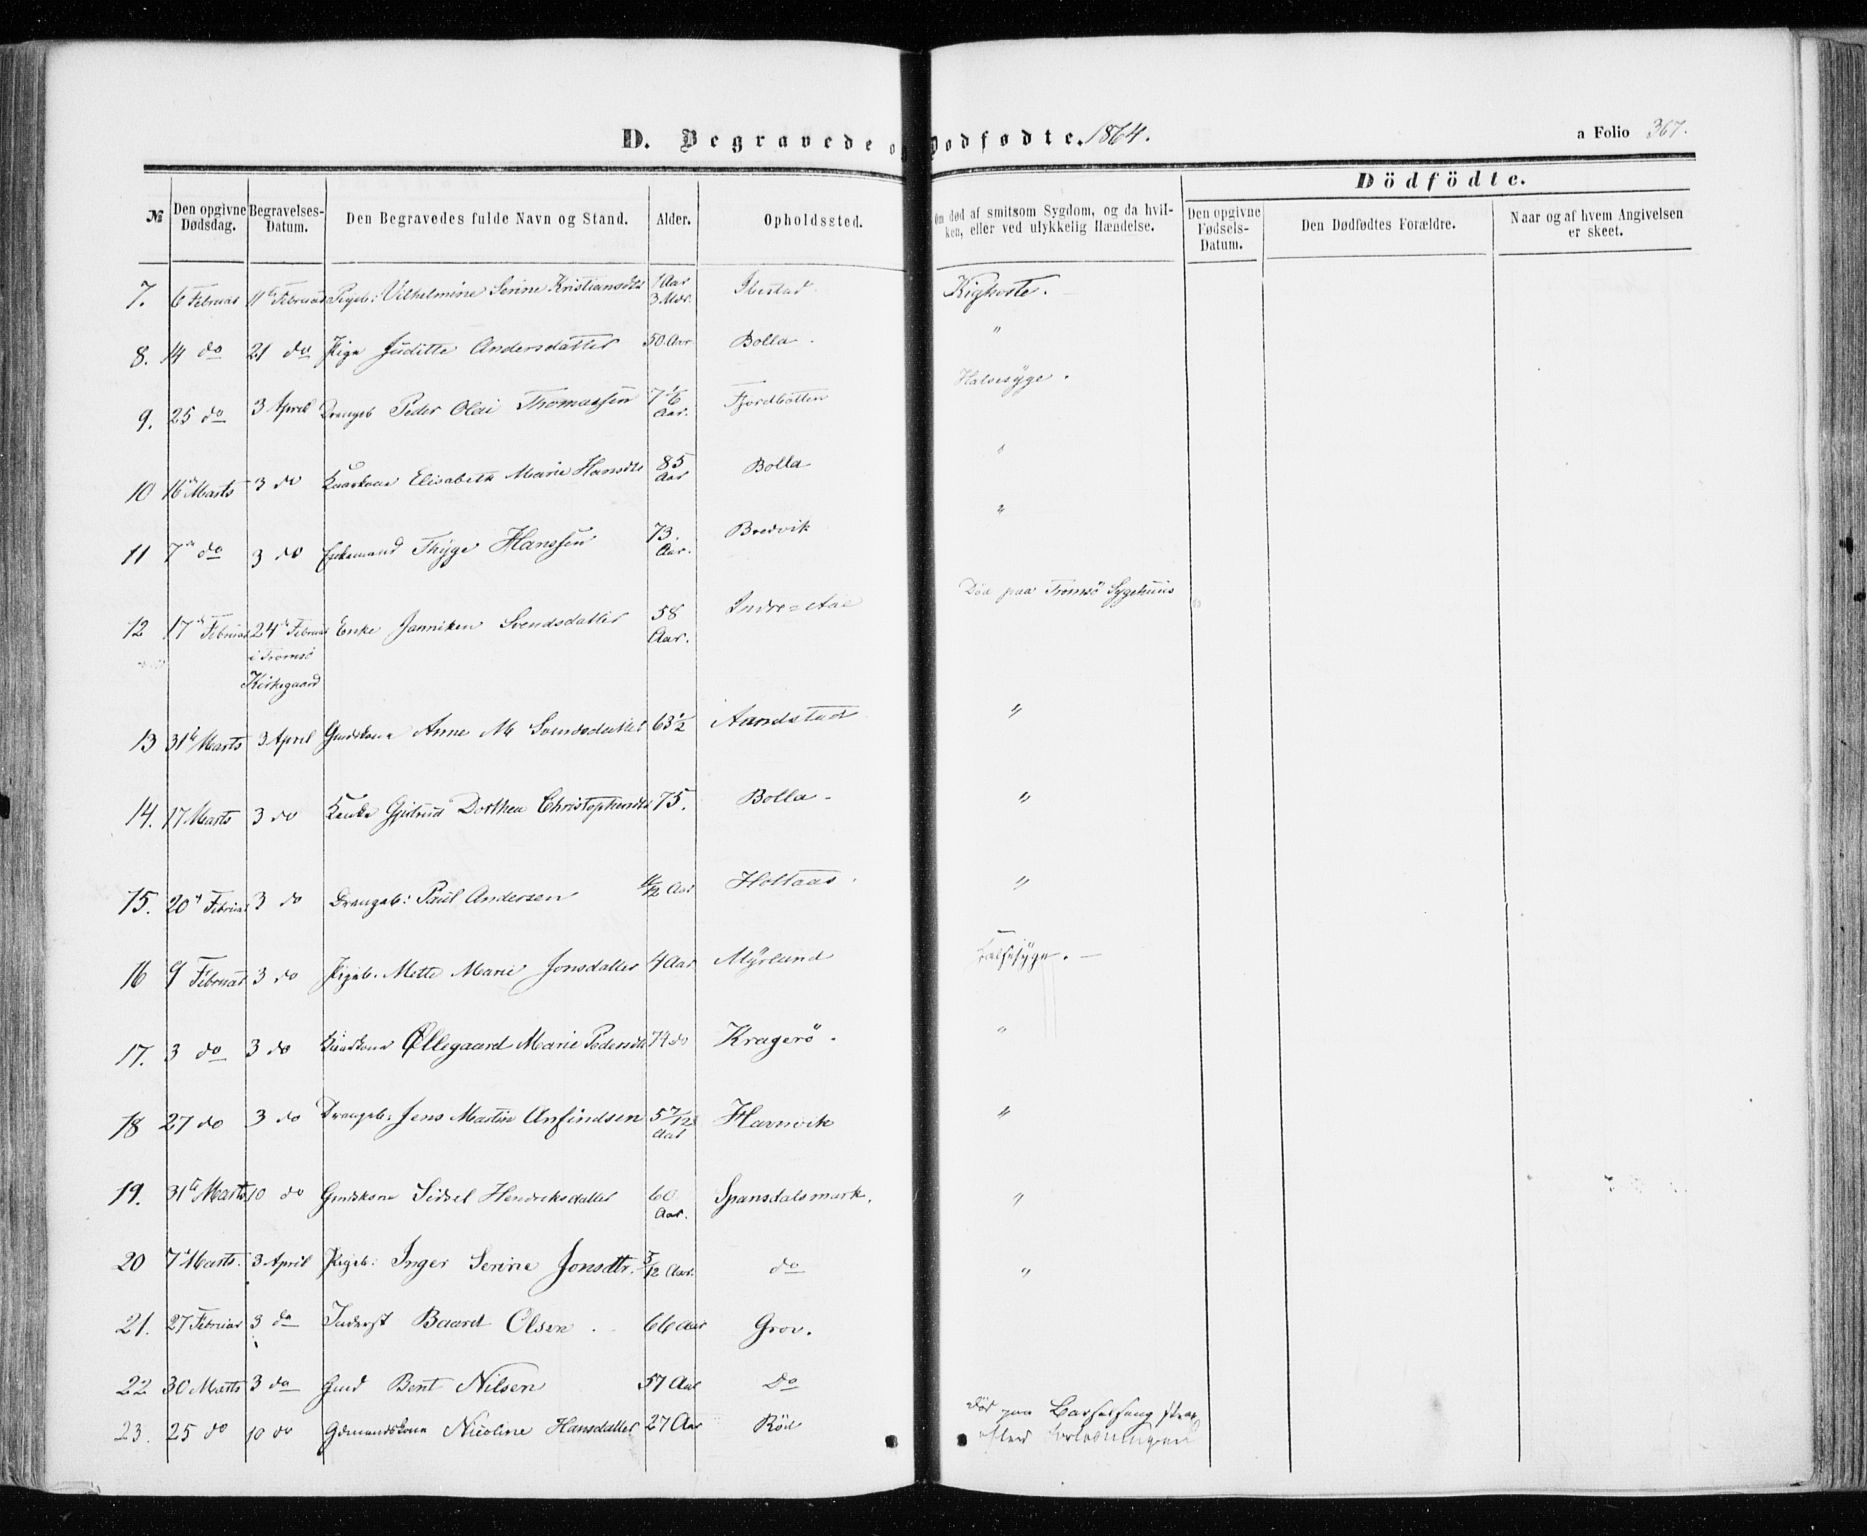 D. Begravede og Dødfødte. 1864.
a Folio 367.
Dödfödte.
№ Den opgivne Dødsdag. Begravelses-Datum. Den Begravedes fulde Navn og Stand. Alder. Opholdssted. Om død af smitsom Sygdom, og da hvilken, eller ved ulykkelig Hændelse. Den opgivne Fødsels-Datum. Den Dødfødtes Forældre. Naar og af hvem Angivelsen er skeet.
7. 6 Februar 11te Februar Pigeb: Vilhelmine Serine Kristiansdtr 1 Aar 3 Mdr. Ibestad Kighoste.
8. 14 do 21 do Pige Juditte Andersdatter 50 Aar Bolla. "
9. 25 do 3 April Drengeb Peder Olai Thomassen 7 1/6 Aar. Fjordbotten Halvesyge.
10 16de Marts 3 do Elisabeth Marie Hansdtr 85 Aar Bolla "
11 7de do 3 do Enkemand Thyge Hanssen 73. Aar. Bredvik "
12 17de Februar 24de Februar i Tromsö Kirkegaard Enke Janniken Svendsdatter 58 Aar. Indre Aae Död paa Tromsö Sygehuus
13 31te Marts 3 April Gaardkone Anne M Svendsdatter 63 1/2 Aandstad "
14. 17 Marts 3 do Gjertrud Dorthea Christophersdtr 75. Bolla. "
15. 20de Februar 3 do Drengeb: Paul Andersen 11/12 Aar Holtaas. "
16 9 Februar 3 do Pigeb. Mette Marie Jonsdatter 4 Aar Myrlund Halsesyge.
17. 3 do 3 do Øllegaard Marie Pedersdtr 74 do Kragerö. "
18 27 do 3 do Drengeb: Jens Martin Anfindsen 5 7/12 Aar Havnvik "
19. 31te Marts 10 do Gmdskone Sidsel Hendriksdatter 60 Aar. Spansdalsmark. "
20 7de Marts. 3 April Pigeb: Inger Serine Jonsdtr. 5/12 Aar. do "
21. 27 Februar 3 do Inderst Baard Olsen 66 Aar Grov.
22 30 Marts 3 do Gmd Bent Nilsen 57 Aar Do
23. 25 do 10 do Gdmandskone Nicoline Hansdatter 27 Aar Röd Död paa Barselseng strax efter Forlösningen